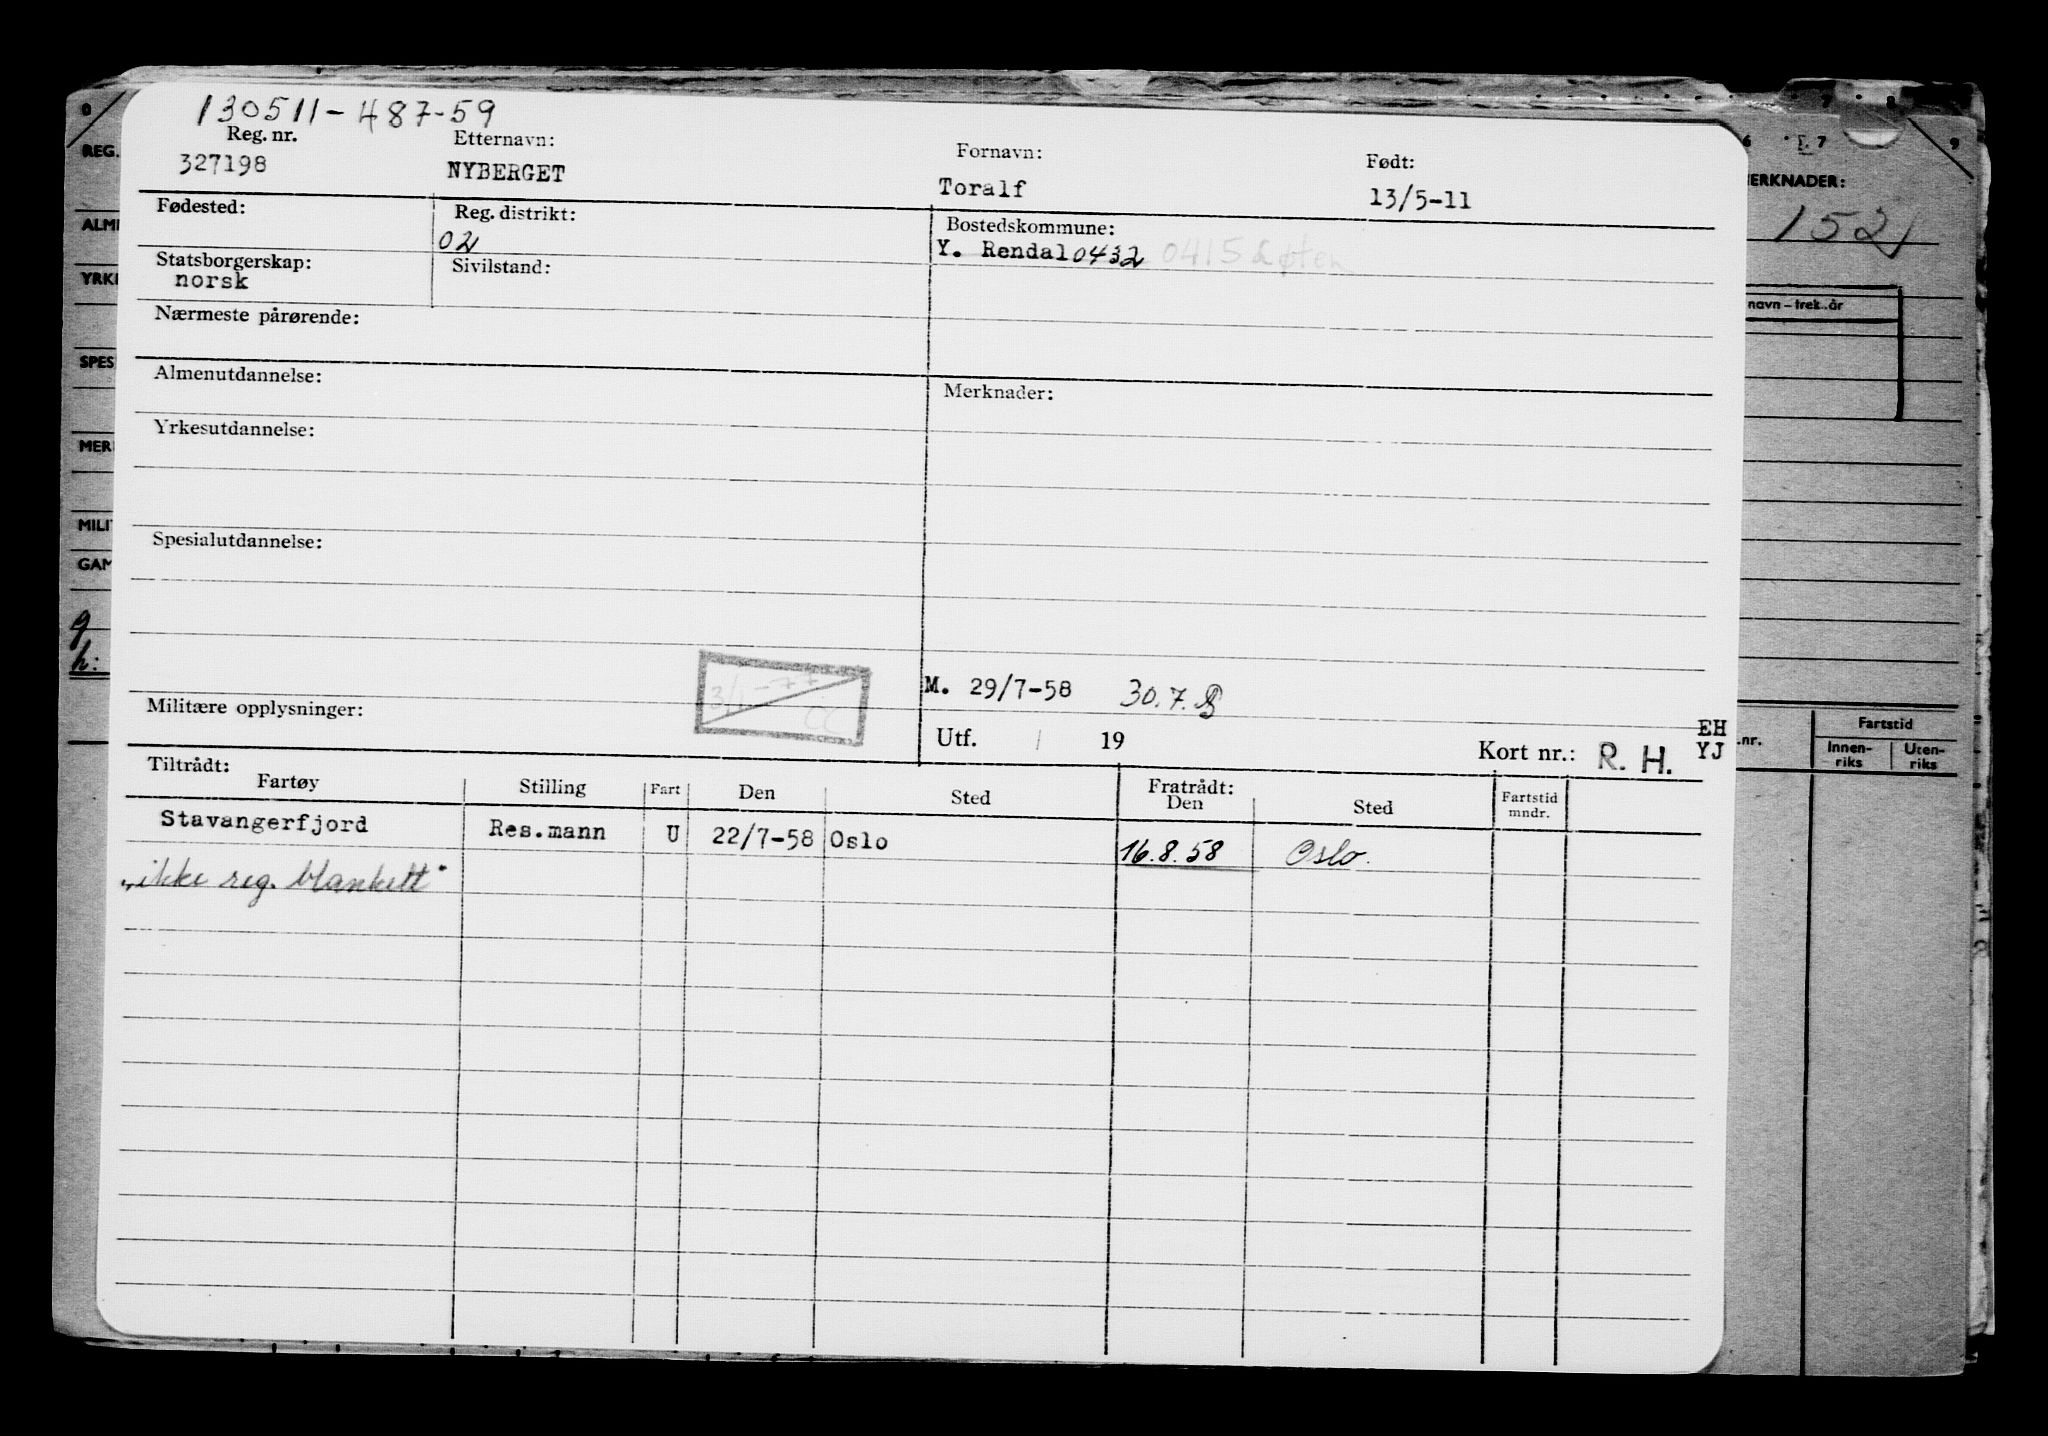 130511-487-59
Reg. nr. Etternavn: Fornavn: Født:
327198 NYBERGET Toralf 13/5-11
Fødested: Reg. distrikt: Bostedskommune:
02 Y. Rendal 0432 0415 Løten
Statsborgerskap: Sivilstand:
norsk
Nærmeste pårørende:
Almenutdannelse: Merknader:
Yrkesutdannelse:
Spesialutdannelse:
3/1-77
M. 29/7-58 30.7.
Militære opplysninger:
Utf. / 19 Kort nr.: R. H. EH
YJ
Tiltrådt: Fratrådt:
Fartøy Stilling Fart Den Sted Den Sted Fartstid
mndr.
Stavangerfjord Res.mann U 22/7-58 Oslo 16.8.58 Oslo.
"ikke reg. blankett"
0
REG.
ALM
YRKE
SPES
MER
MILIT
GAM
g
h:
6 7 8 9
ERKNADER:
152
navn – trek..år
.nr. Fartstid
Innen-
riks Uten-
riks